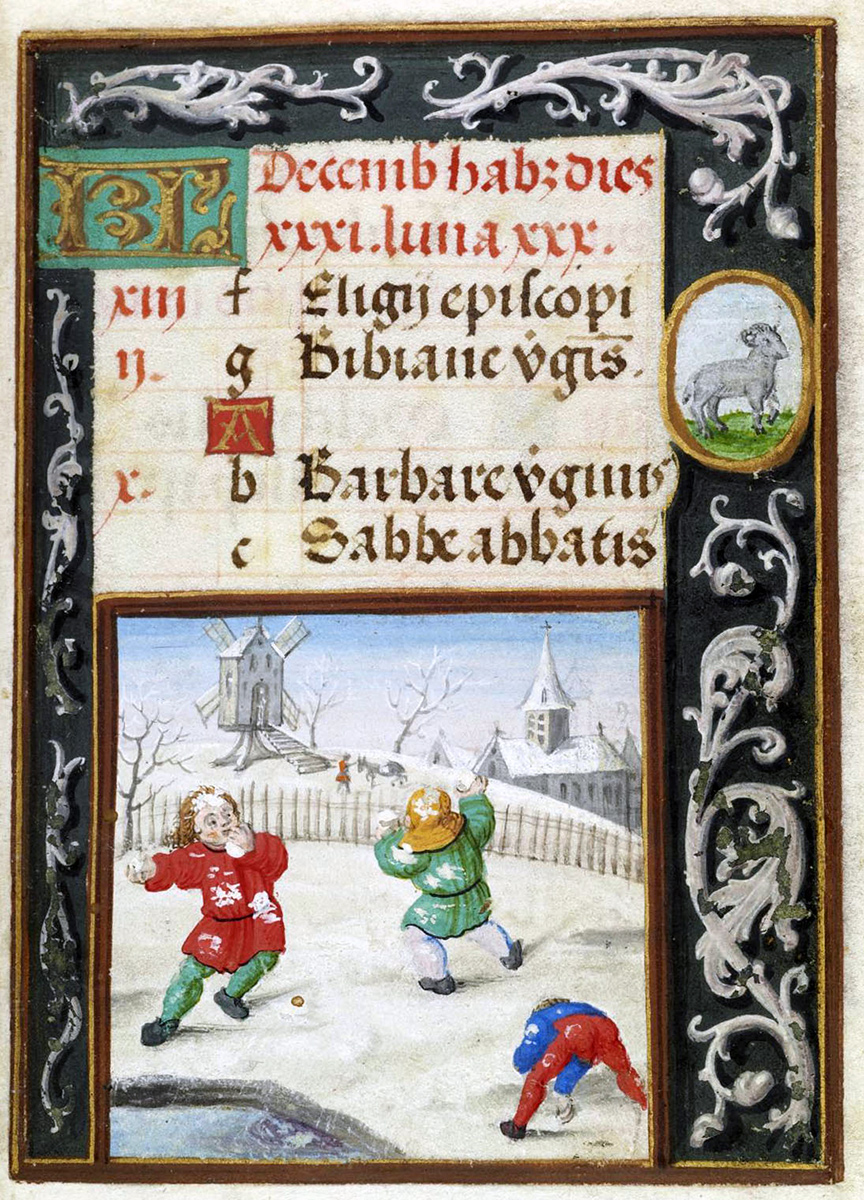 KL Decemb̄ habꝫ dies
xxxi. luna xxx.
xiii f Eligij episcopi
ij. g Bibiane v̓gis̄.
A
x. b Barbare v̓ginis
c Sabbe abbatis